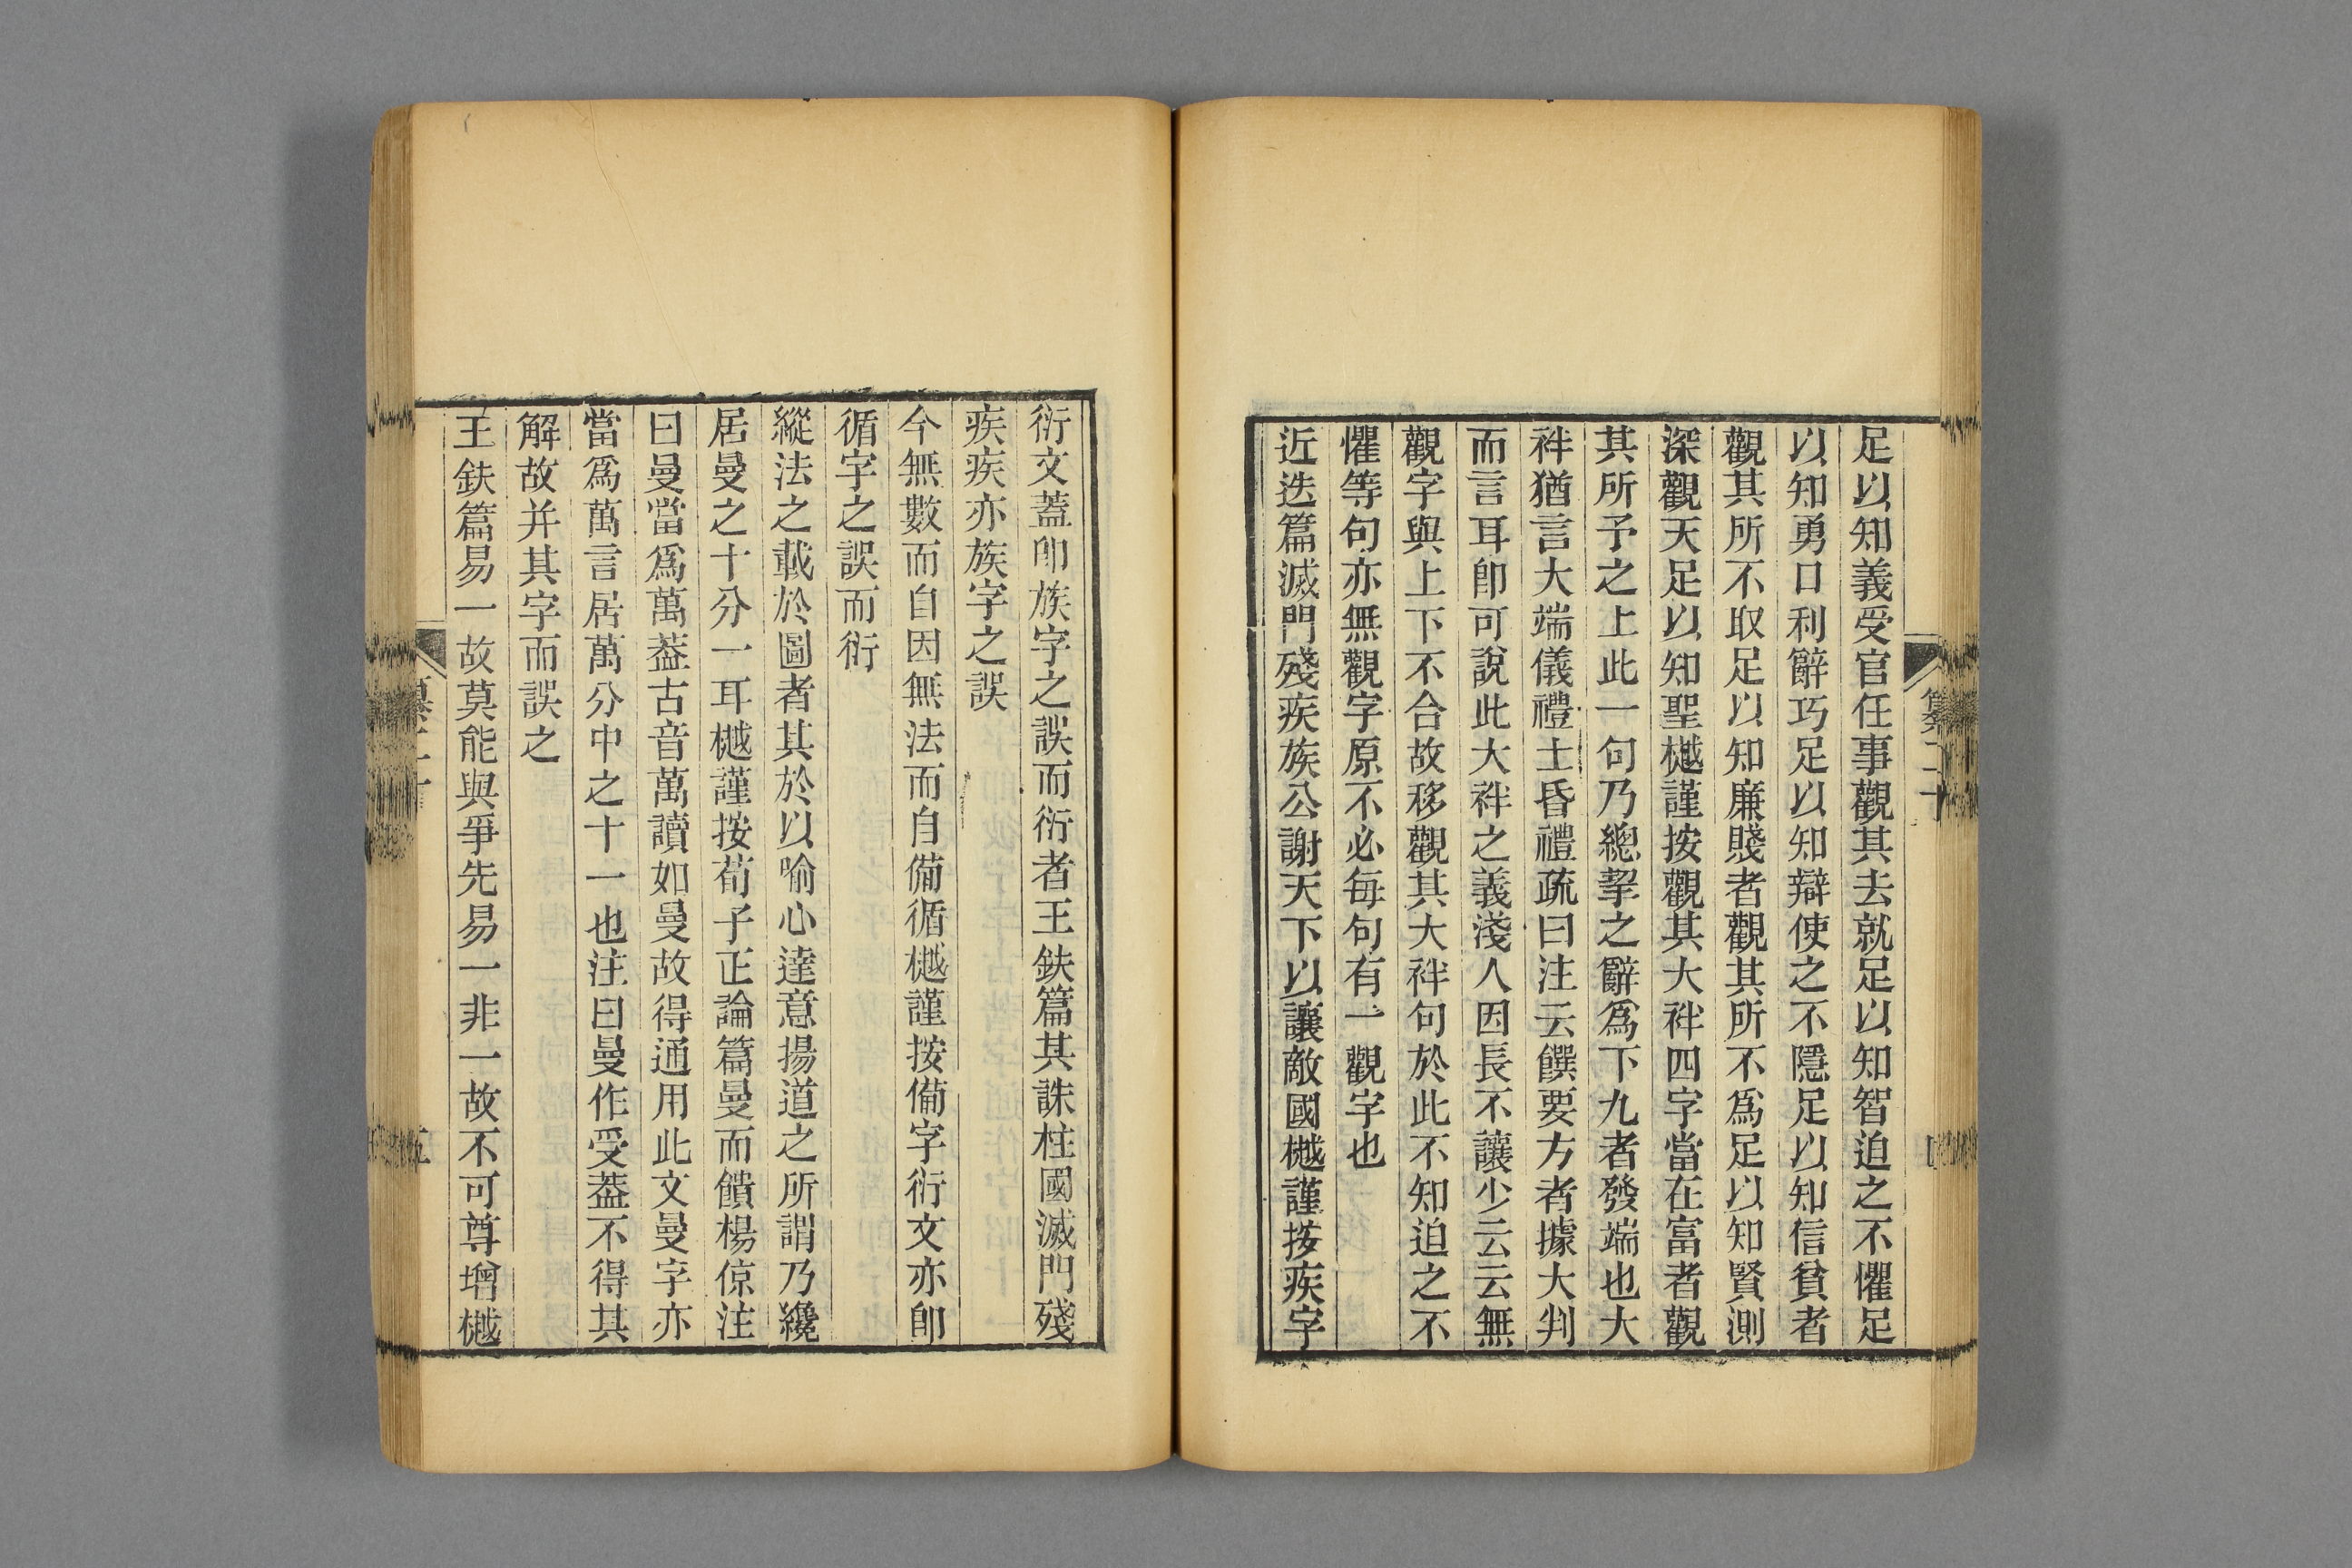 足以知義受官任事觀其去就足以知智迫之不懼足
以知勇口利辭巧足以知辯使之不隱足以知信貧者
觀其所不取足以知廉賤者觀其所不爲足以知賢測
深觀天足以知聖樾謹按觀其大袢四字當在富者觀
其所予之上此一句乃總挈之辭爲下九者發端也大
袢猶言大端儀禮士昏禮疏曰注云饌要方者據大判
而言耳卽可說此大袢之義淺人因長不讓少云云無
觀字與上下不合故移觀其大袢句於此不知迫之不
懼等句亦無觀字原不必每句有一觀字也
近迭篇滅門殘疾族公謝天下以讓敵國樾謹按疾字
衍文蓋卽族字之誤而衍者王鈇篇其誅柱國滅門殘
疾疾亦族字之誤
今無數而自因無法而自備循樾謹按備字衍文亦卽
循字之誤而衍
縱法之載於圖者其於以喻心達意揚道之所謂乃纔
居曼之十分一耳樾謹按荀子正論篇曼而饋楊倞注
曰曼當爲萬葢古音萬讀如曼故得通用此文曼字亦
當爲萬言居萬分中之十一也注曰曼作受葢不得其
解故并其字而誤之
王鈇篇易一故莫能與爭先易一非一故不可尊增樾